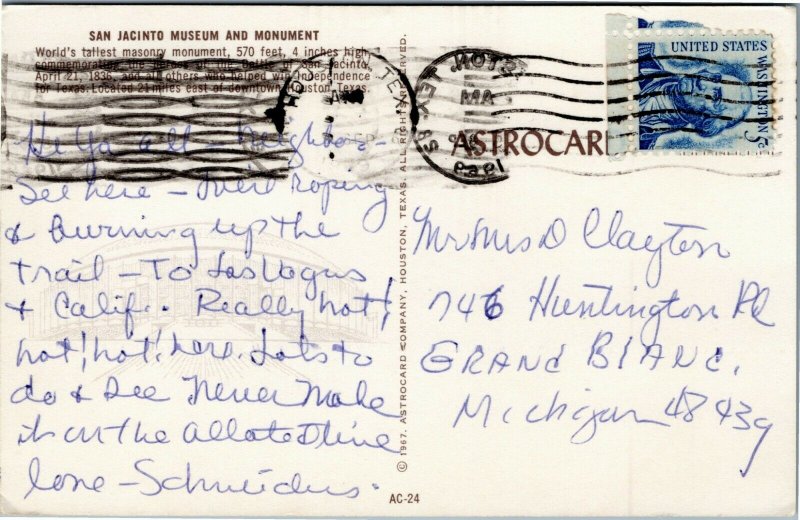 SAN JACINTO MUSEUM AND MONUMENT
World's tallest masonry monument, 570 feet, 4 inches high,
commemorating the heroes of the Battle of San Jacinto,
April 21, 1836, and all others who helped win Independence
for Texas. Located 21 miles east of downtown Houston, Texas.
Hi Ya all - Neighbors -
See here - We're roping
& burning up the
trail - To Las Vegas
& Calif.. Really hot!
hot! hot! here. Lots to
do & see Never make
it in the allotted time
love - Schneiders.
© 1967. ASTROCARD COMPANY, HOUSTON, TEXAS. ALL RIGHTS RESERVED.
AC-24
HOU
TE
HOUSTON
TEX.
AM
1969
ASTROCARD
UNITED STATES
WASHINGTON
5c
Mr Mrs D Clayton
746 Huntington Pl
GRAND BLANC.
Michigan 48439